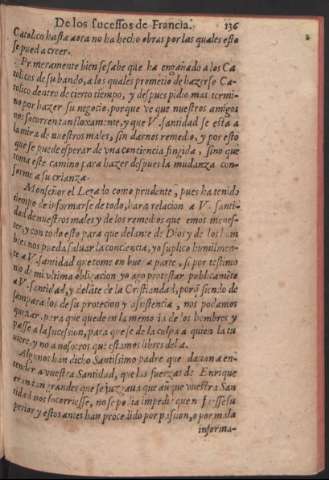 De los sucessos de Francia. 136
Catolico hasta aora no ha hecho obras por las quales esto
se pueda creer.
Primeramente bien se sabe que ha engañado a los Ca
tolicos de su bando, a los quales prometio de hazerse Ca
tolico dentro de cierto tiempo, y despues pidio mas termi
no por hazer su negocio, porque ve que nuestros amigos
nos socorren tan floxamente, y que V. santidad se esta a
la mira de nuestros males, sin darnos remedio, y por esto
que se puede esperar de vna conciencia fingida, sino que
toma este camino para hazer despues la mudanza con-
forme a su crianza.
Monseñor el Legado como prudente, pues ha tenido
tiempo de informarse de todo, hara relacion a V. santi-
dad de nuestros males y de los remedios que emos menes-
ter, y con todo esto para que delante de Dios y de los hom
bres nos pueda saluar la conciencia, yo suplico humilmen-
te a V. santidad que tome en buena parte, si por testimo
nio de mi vltima obligacion yo aqui protestar publicamẽte
a V. santidad, y delãte de la Cristiandad, porq̃ siendo de
samparados de su protecion y assistencia, nos podamos
quitar, para que quede en la memoria de los hombres y
passe a la sucession, para que se de la culpa a quien la tu
uiere, y no a nosotros que estamos libres della.
Algunos han dicho Santissimo padre que dauan a en-
tender a vuestra Santidad, que las fuerzas de Enrique
eran tan grandes que se juzgaua que aũque vuestra San
tidad nos socorriesse, no se podia impedir que no fuesse su
perior, y estos antes han procedido por passion, o por mala
informa-